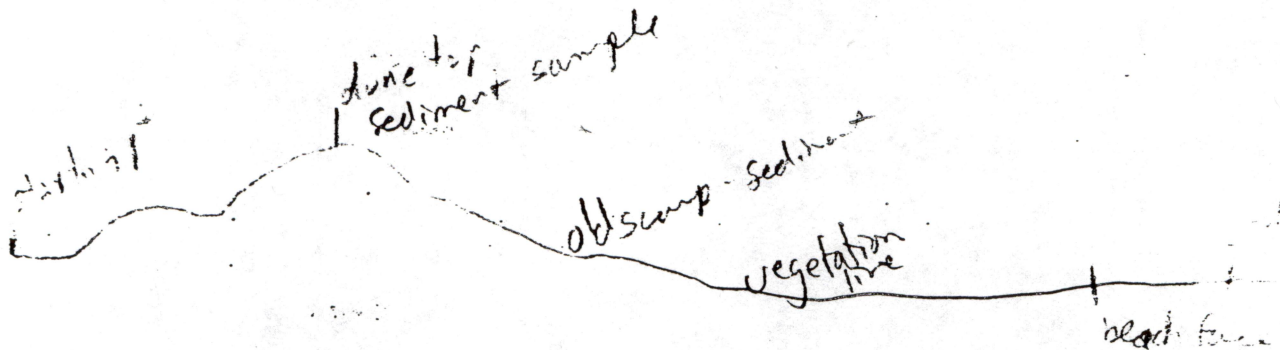 dune top
sediment sample
old scarp - sediment
vegetation
line
beach face